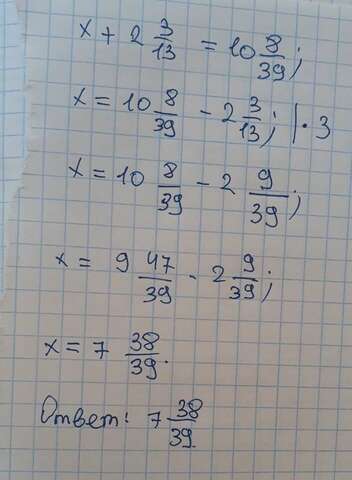 x + 2 3/13 = 10 8/39;
x = 10 8/39 - 2 3/13; | · 3
x = 10 8/39 - 2 9/39;
x = 9 47/39 - 2 9/39;
x = 7 38/39.
Ответ: 7 38/39